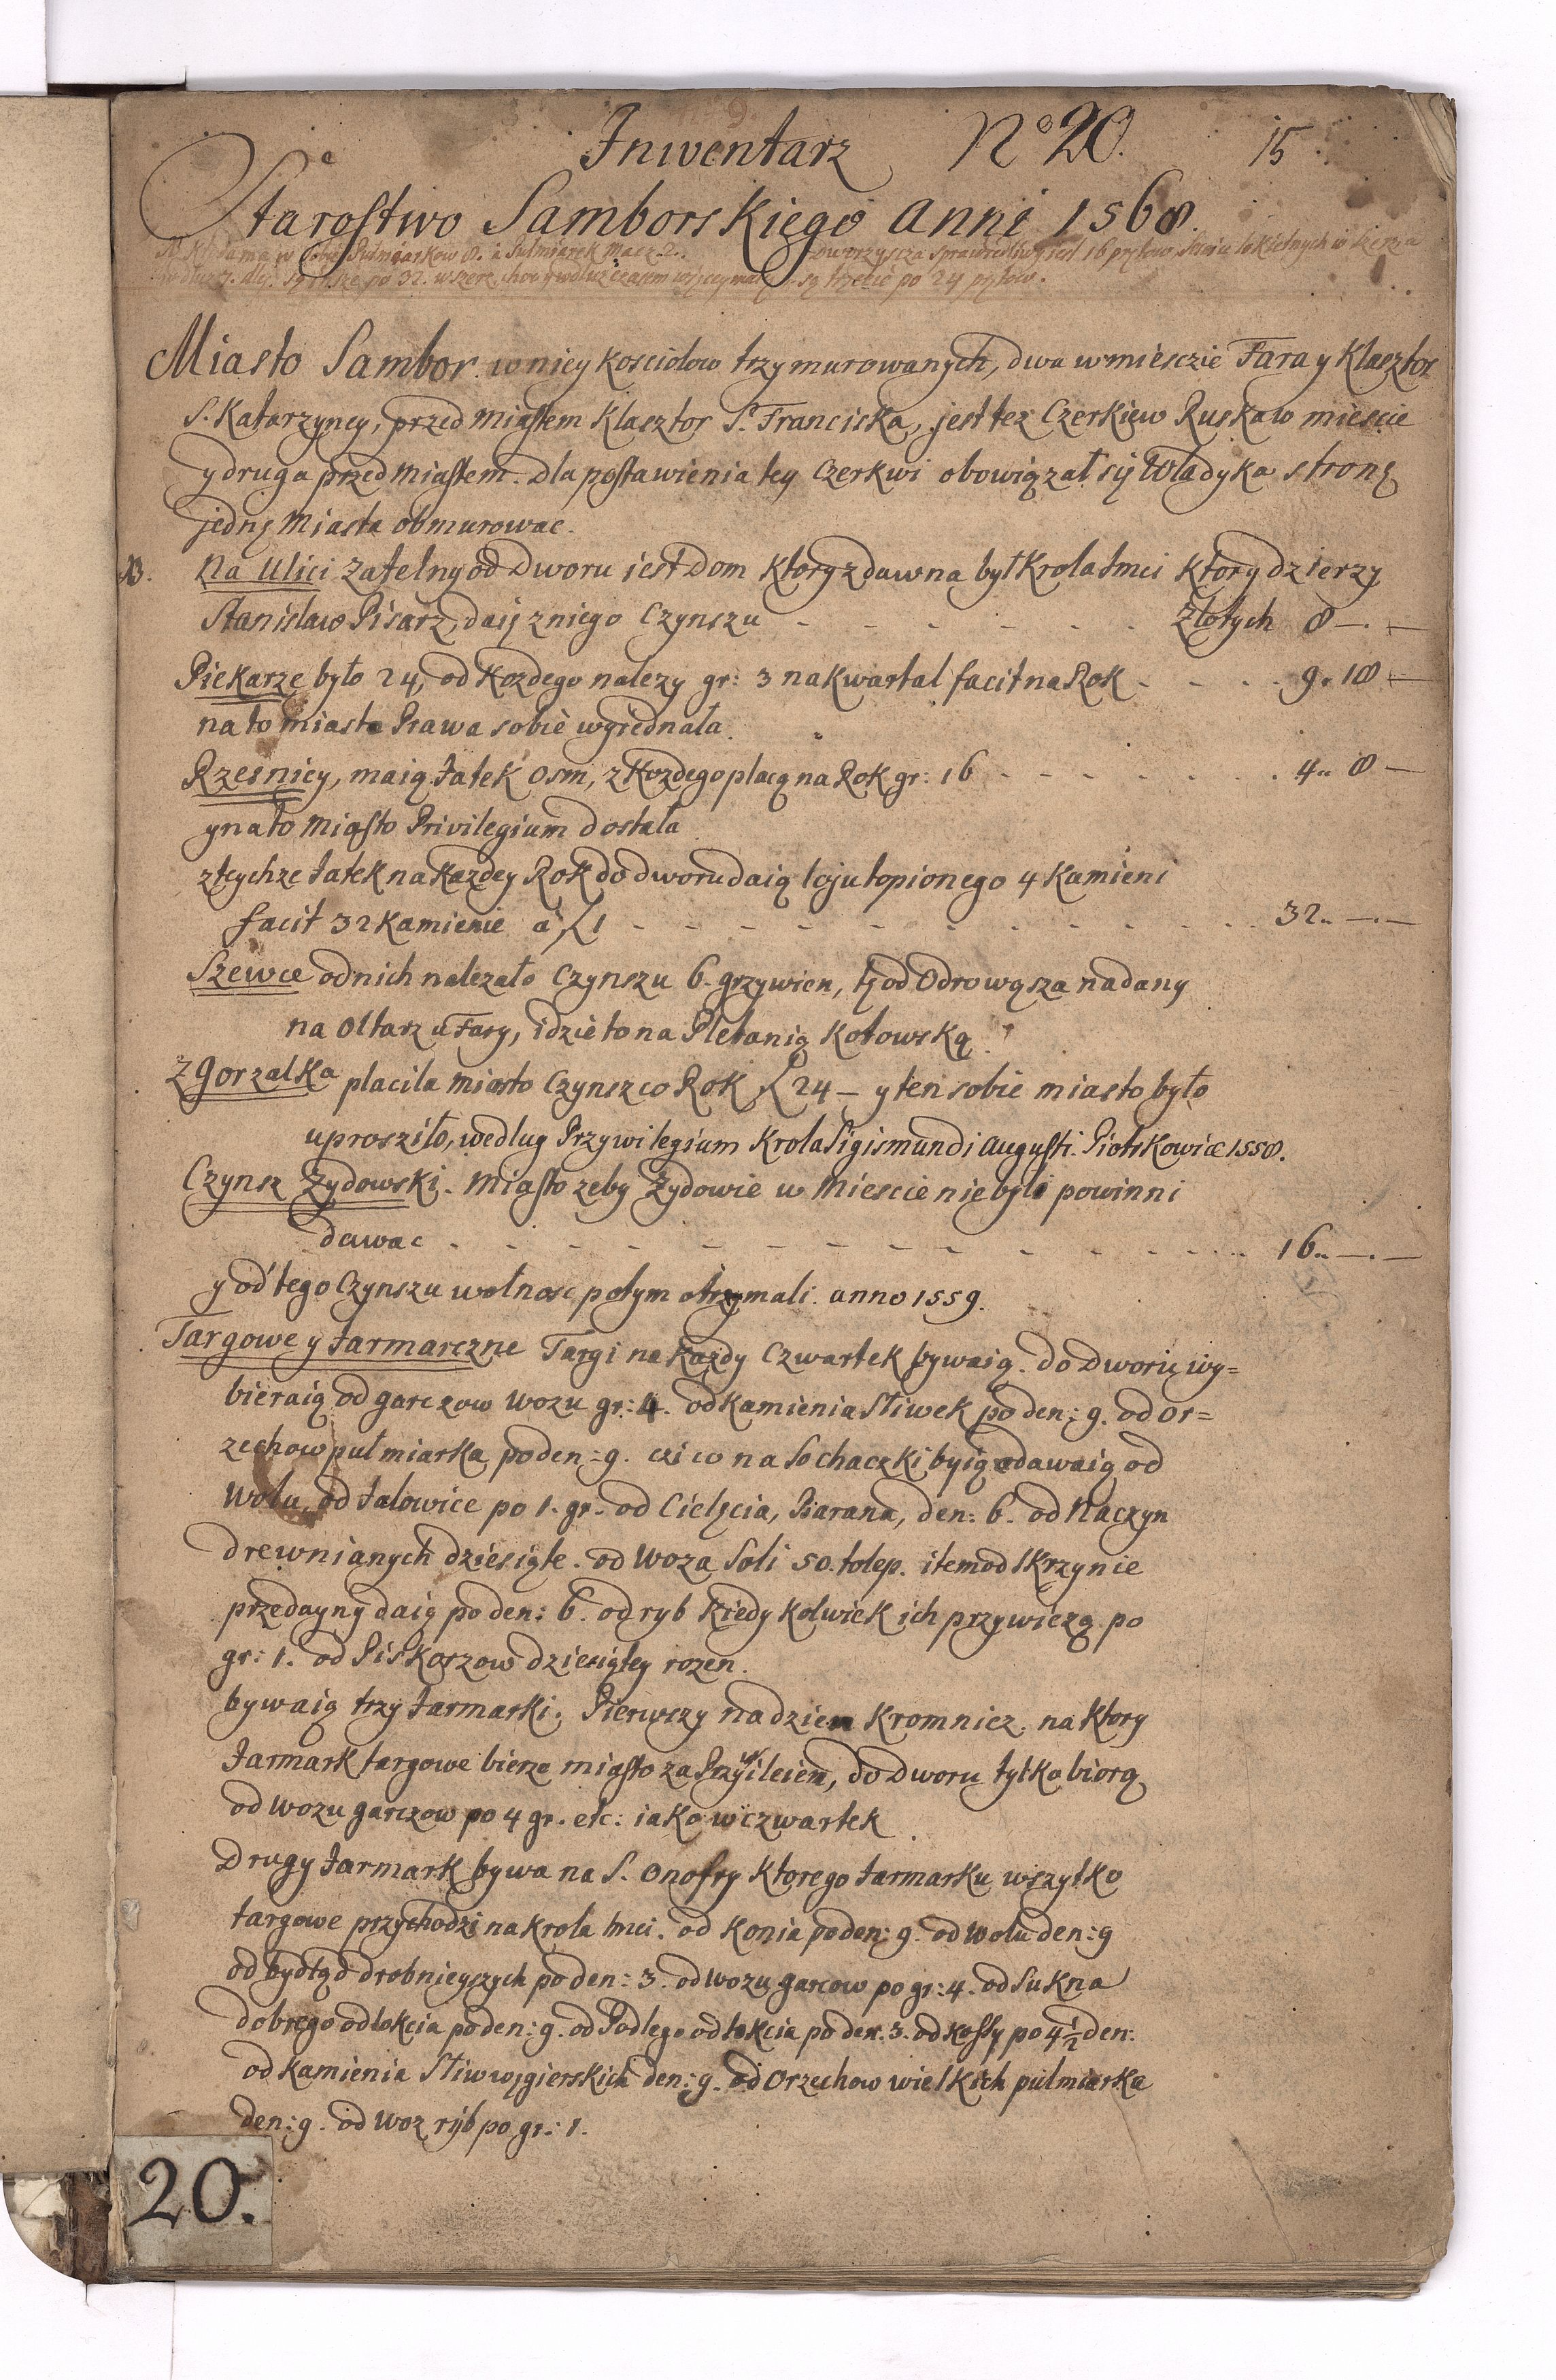 Inwentarz No 20. 15
Starostwo Samborskiego Anni 1568.
Miasto Sambor. w niey Kosciolow trzy murowanych, dwa wmiesczie Fara y Klasztor
S. Katarzyney, przed Miastem Klasztor S. Franciska, jest tez Czerkiew Ruska w miescie
y druga przed Miastem. Dla postawienia tey Czerkwi obowiązał się Wladyka stronę
jednę Miasta obmurowac.
Na Ulici Zatelny od Dworu jest Dom Ktory zdawna był Krola Jmci Ktory dzierzy
Stanislaw Pisarz, daię zniego Czynszu - - - - - - Złotych 8 —.—
Piekarze było 24, od Kozdego nalezy gr: 3 na kwartal facit na Rok - - - - 9.. 18 —
na to miasto Prawa sobie wyiednała.
Rzesnicy, maią Jatek osm, z Kozdego placą na Rok gr: 16 - - - - - - 4.. 8 —
y na to Miasto Privilegium dostała
z tychze Jatek na Kazdey Rok do dworu daią loju topionego 4 Kamieni
facit 32 Kamienie a f 1 - - - - - - - - - - 32.. —.—
Szewce od nich nalezało Czynszu 6. grzywien, tę od Odrowąsza nadany
na Oltarz u Fary, idzie to na Plebanią Kotowską.
Z Gorzalka placila Miasto Czynsz co Rok f 24 — y ten sobie miasto było
uprosziło, wedlug Przywilegium Krola Sigismundi Augusti. Piotrkowiae 1558.
Czynsz Zydowski. Miasto zeby Zydowie w Miescie nie byli powinni
dawac - - - - - - - - - - - - - 16.. —.—
y od tego Czynszu wolnosc potym otrzymali. anno 1559.
Targowe y Jarmarczne Targi na Kazdy Czwartek bywaią. do Dworu wy=
bieraią od garczow wozu gr: 4. od kamienia Sliwek po den: 9. od Or=
zechow pułmiarka po den: 9. czi co na Sochaczki byią dawaią od
Wołu, od Jalowice po 1. gr. od Cielęcia, Barana, den: 6. od Naczyn
drewnianych dziesiąte. od Woza Soli 50. tolep. item od Skrzynie
przedayny daią po den: 6. od ryb Kiedy Kolwiek ich przywiezą po
gr: 1. od Piskorzow dziesiątey rozen.
bywaią trzy Jarmarki. Pierwszy na dzien Kromnicz. na Ktory
Jarmark targowe bierze miasto za Przywileiem, do Dworu tylko biorą
od wozu garczow po 4 gr. etc: iako w czwartek.
Drugy Jarmark bywa na S. Onofry Ktorego Jarmarku wszytko
targowe przychodzi na Krola Jmci. od Konia po den: 9. od Wolu den: 9
od bydłąd drobnieyszych po den: 3. od wozu garcow po gr: 4. od Sukna
dobrego od łokcia po den: 9. od Podlego od łokcia po den. 3. od kossy po 4 1/2 den:
od kamienia Sliw węgierskich den: 9. od Orzechow wielkich pulmiarka
den: 9. od Woz ryb po gr: 1.
20.